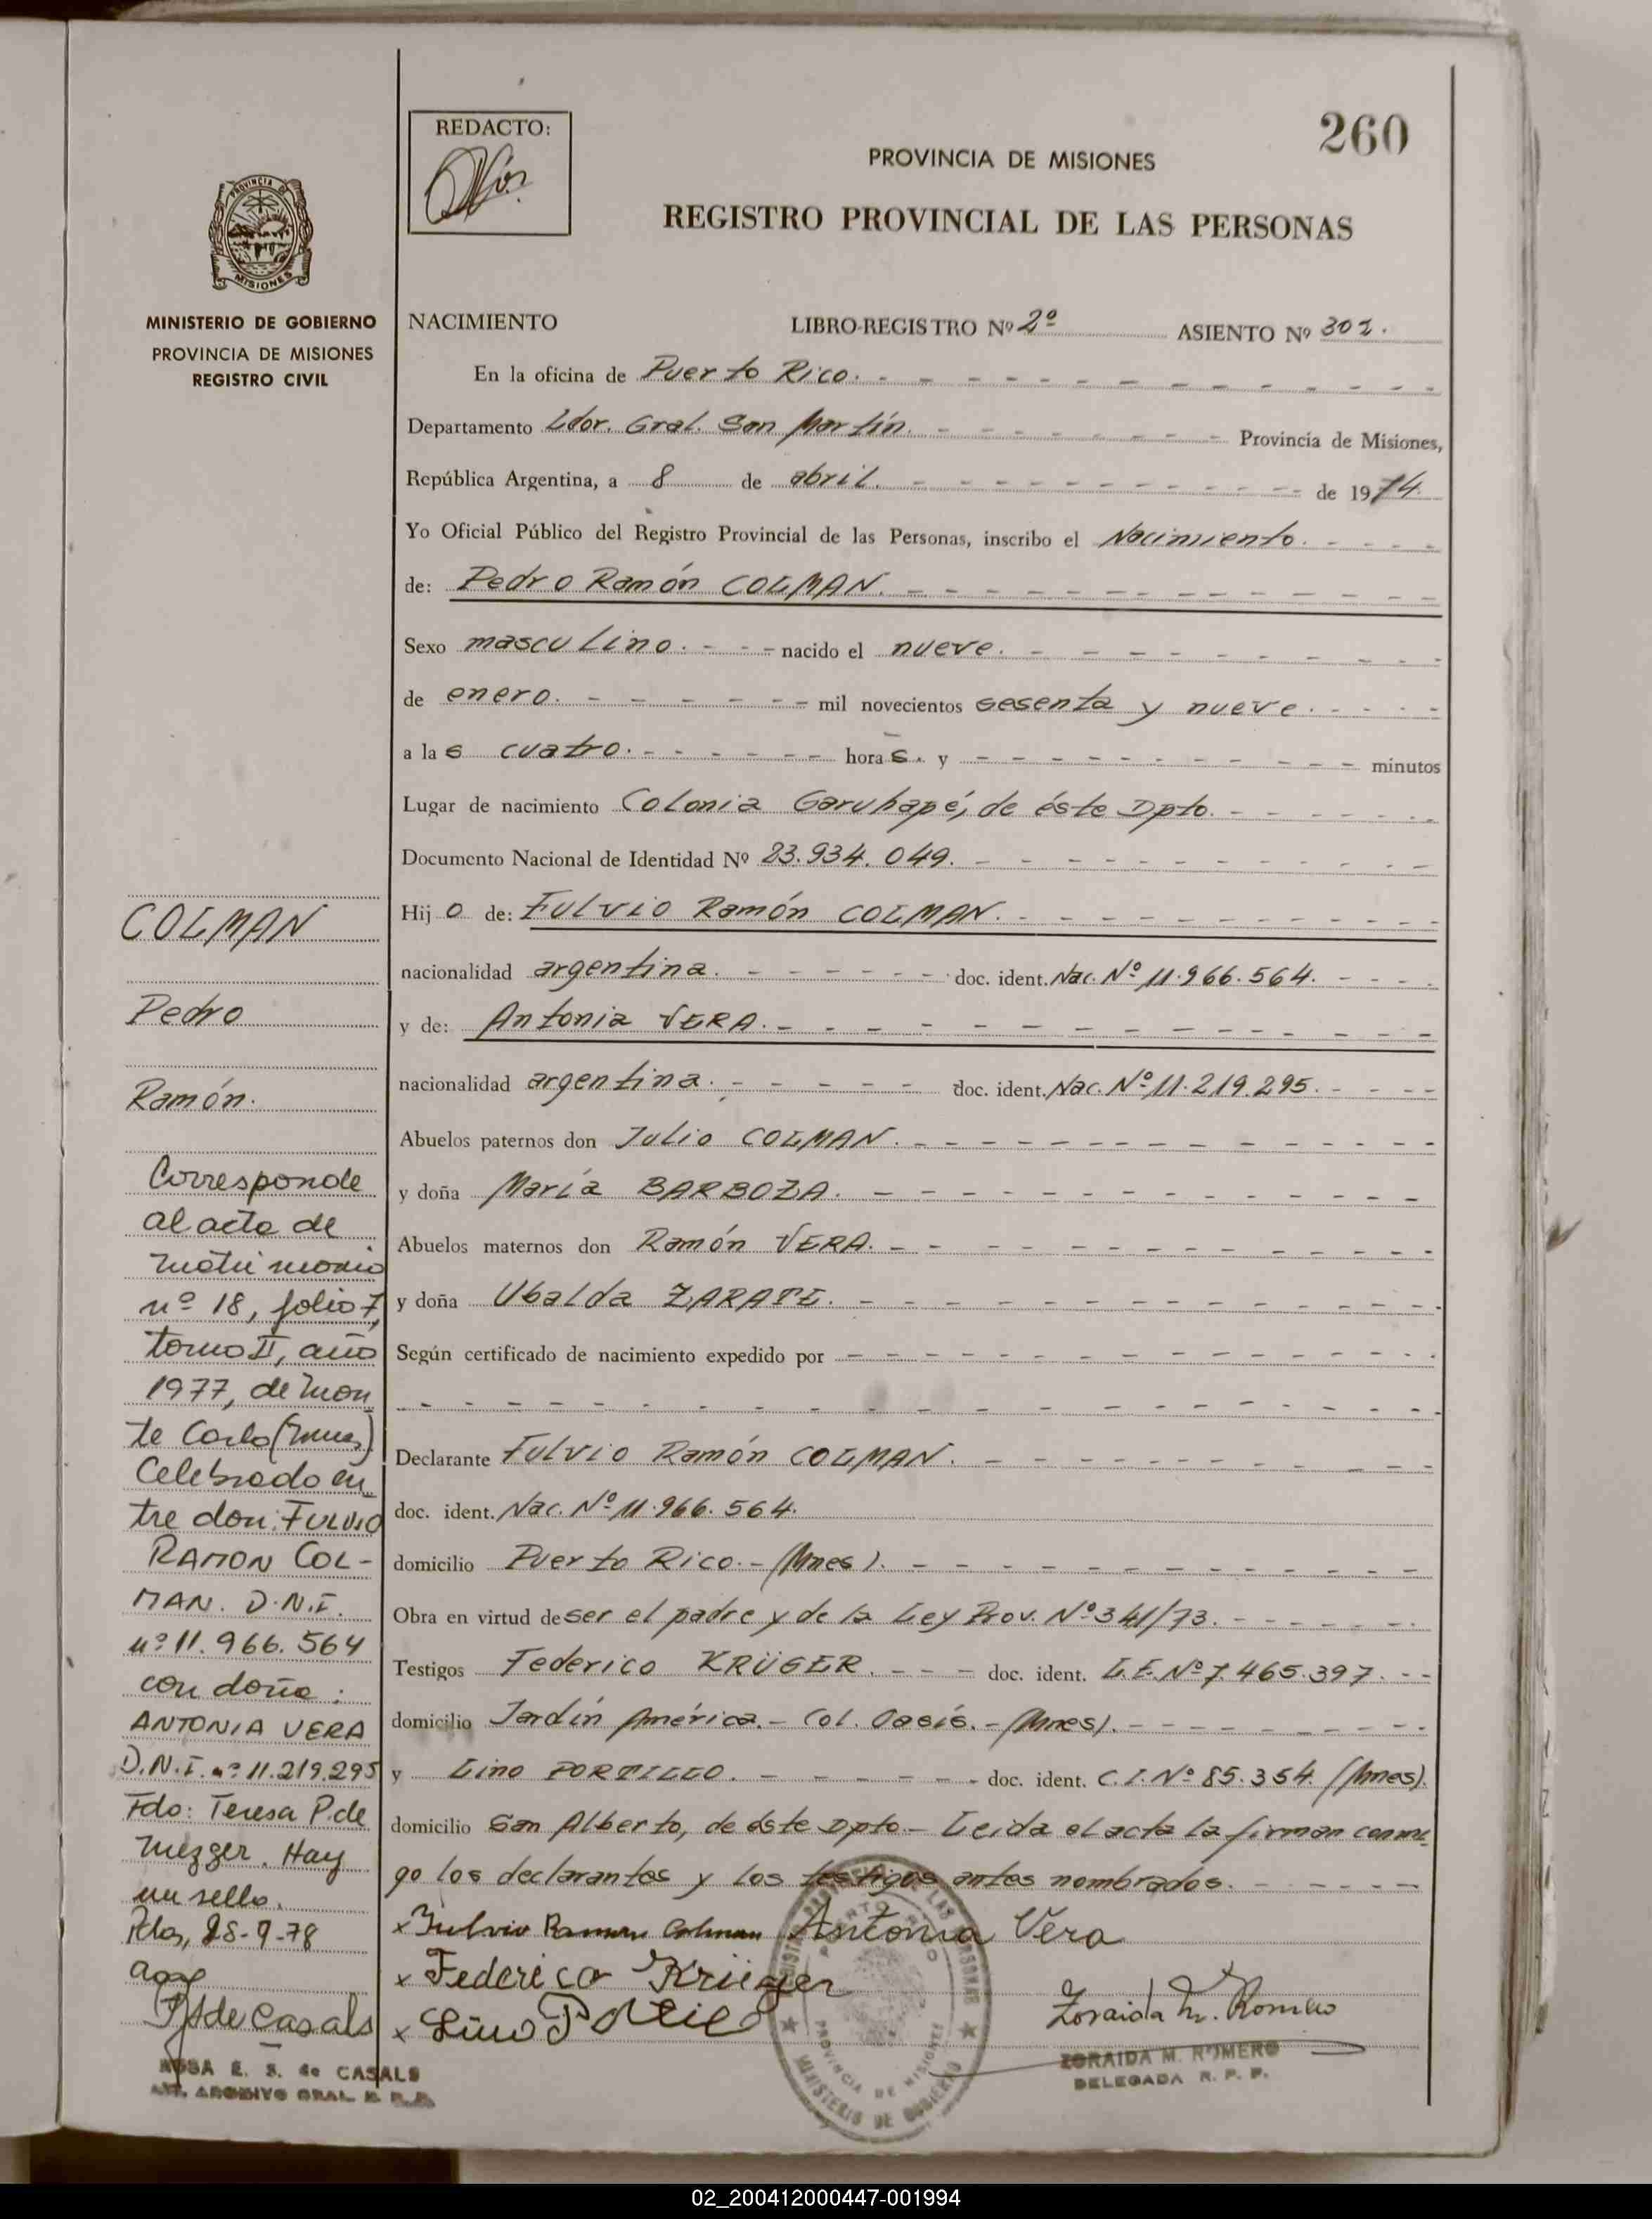 260
REDACTO:
PROVINCIA DE MISIONES
REGISTRO PROVINCIAL DE LAS PERSONAS
PROVINCIA DE
MISIONES
MINISTERIO DE GOBIERNO
PROVINCIA DE MISIONES
REGISTRO CIVIL
NACIMIENTO LIBRO-REGISTRO Nº 2º ASIENTO Nº 301.
En la oficina de Puerto Rico.
Departamento Ldor. Gral. San Martín. Provincia de Misiones,
República Argentina, a 8 de abril. de 1974
Yo Oficial Público del Registro Provincial de las Personas, inscribo el Nacimiento.
de: Pedro Ramón COLMAN.
Sexo masculino. nacido el nueve.
de enero. mil novecientos sesenta y nueve.
a las cuatro. horas. y minutos
Lugar de nacimiento Colonia Garuhapé, de éste Dpto.
Documento Nacional de Identidad Nº 23.934.049.
Hijo de: Fulvio Ramón COLMAN.
nacionalidad argentina. doc. ident. Nac. Nº 11.966.564.
y de: Antonia VERA.
nacionalidad argentina. doc. ident. Nac. Nº 11.219.295.
Abuelos paternos don Julio COLMAN.
y doña María BARBOZA.
Abuelos maternos don Ramón VERA.
y doña Ubalda ZARATE.
Según certificado de nacimiento expedido por
Declarante Fulvio Ramón COLMAN.
doc. ident. Nac. Nº 11.966.564.
domicilio Puerto Rico.- (Mnes).
Obra en virtud de ser el padre y de la Ley Prov. Nº 341/73.
Testigos Federico KRÜGER. doc. ident. L.E. Nº 7.465.397.
domicilio Jardín América.- Col. Oasis.- (Mnes).
y Lino PORTILLO. doc. ident. C.I. Nº 85.354 (Mnes).
domicilio San Alberto, de éste Dpto.- Leida el acta la firman conmi-
go los declarantes y los testigos antes nombrados.
x Fulvio Ramon Colman Antonia Vera
x Federico Krieger
x Lino Portilo
Zoraida M. Romero
ZORAIDA M. ROMERO
DELEGADA R. P. P.
PUERTO RICO
PROVINCIA DE MISIONES
MINISTERIO DE GOBIERNO
COLMAN
Pedro
Ramón.
Corresponde
al acta de
matrimonio
nº 18, folio 7,
tomo II, año
1977, de Mon
te Carlo (Mnes)
Celebrado en
tre don: FULVIO
RAMON COL-
MAN. D.N.I.
nº 11.966.564
con doña:
ANTONIA VERA
D.N.I. nº 11.219.295
Fdo: Teresa P. de
Mezger. Hay
un sello.
Pdas, 25-9-78
de Casals
ROSA E. S. de CASALS
ARCHIVO GRAL
02_200412000447-001994